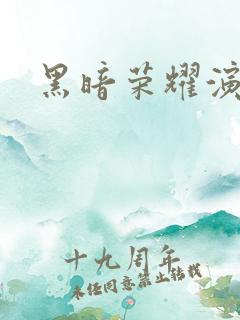 黑暗荣耀演
十九周年
未经同意禁止转载